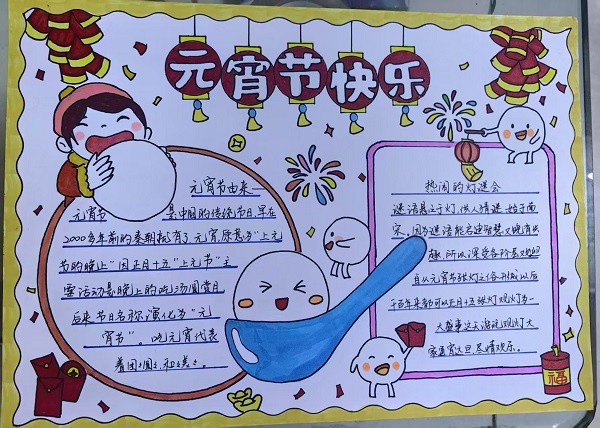 元宵节快乐
元宵节由来
元宵节 是中国的传统节日,早在
2000多年前的秦朝就有了,元宵原意为"上元
节的晚上"因正月十五"上元节"主
要活动是晚上的吃汤圆赏月
后来节日名称演化为"元
宵节"。吃元宵代表
着团团圆圆和美。
热闹的灯谜会
谜语悬之于灯,供人猜谜,始于南
宋。因为谜语能启迪智慧又饶有兴
趣,所以深受各阶层欢迎
自从元宵节张灯之俗形成以后
千百年来都以正月十五张灯观灯为一
大盛事这天游玩观灯大
家通宵达旦,尽情欢乐。
福